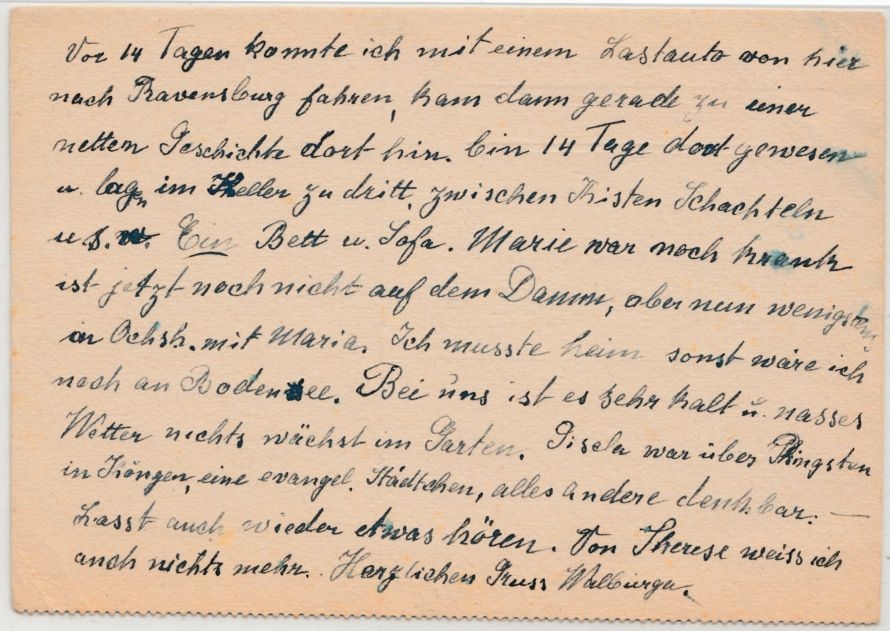 Vor 14 Tagen konnte ich mit einem Lastauto von hier
nach Ravensburg fahren, kam dann gerade zu einer
netten Geschichte dort hin. Bin 14 Tage dort gewesen
u. lagen im Keller zu dritt, zwischen Kisten Schachteln
u. s. w. Ein Bett u. Sofa. Marie war noch krank
ist jetzt noch nicht auf dem Damm, aber nun wenigstens
in Ochsh. mit Maria. Ich musste heim sonst wäre ich
noch an Bodensee. Bei uns ist es sehr kalt u. nasses
Wetter nichts wächst im Garten. Gisela war über Pfingsten
in Köngen, eine evangel. Städtchen, alles andere denkbar. —
Lasst auch wieder etwas hören. Von Therese weiss ich
auch nichts mehr. Herzlichen Gruss Walburga.